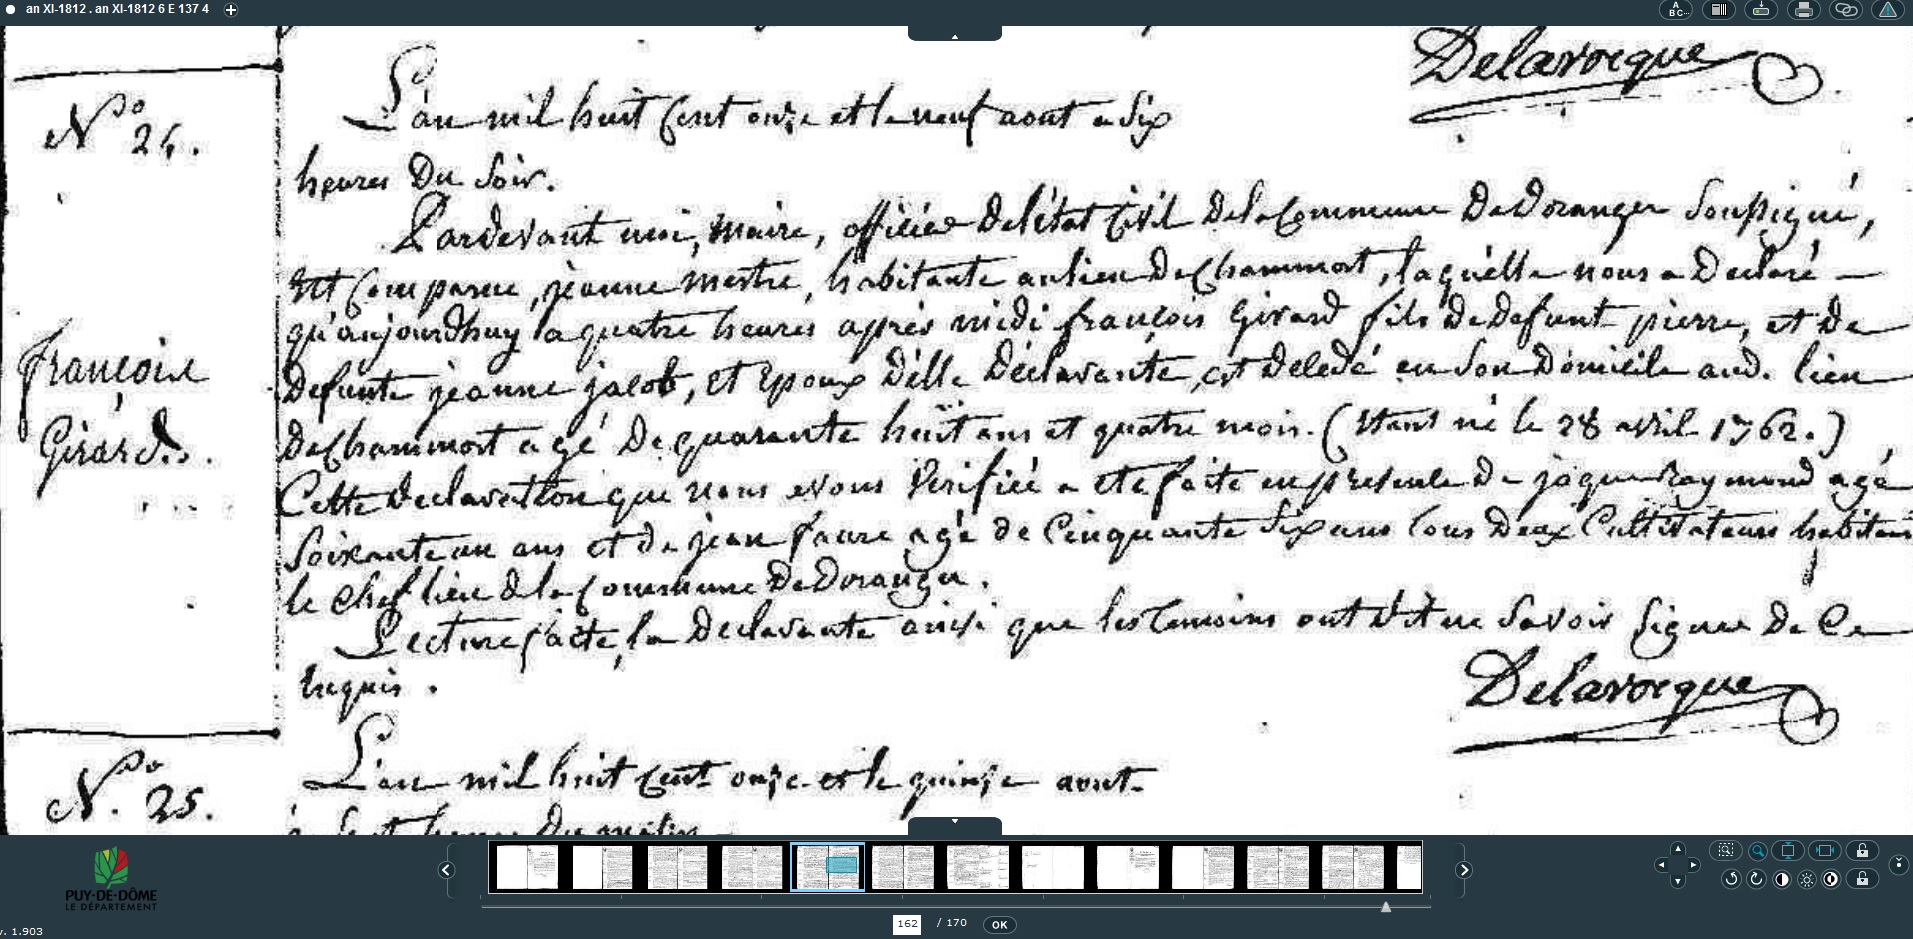 an XI-1812 . an XI-1812 6 E 137 4
Delarocque
N.º 24.
L'an mil huit Cent onze et le neuf aout a Six
heures Du Soir.
Pardevant moi, Maire, officier De l'état Civil De la Commune De Doranges Soussigné,
Est Comparue, jeanne mestre, habitante au lieu De Chammort, laquelle nous a Declaré
qu'aujourdhuy a quatre heures après midi françois Girard fils De Defunt pierre, et De
Defunte jeanne jacob, et Epoux D'elle Déclarante, est Dcdedé en Son Domicile aud. lieu
De Chammort agé De quarante huit ans et quatre mois. (Etant né le 28 avril 1762.)
Cette Declaration que nous avons Verifiée a eté faite en presence De jaque Raymond agé
Soixante un ans et de jean faure agé de Cinquante Six ans tous Deux Cultivateurs habitans
le Chef lieu de la Commune De Doranges.
Lecture faite, la Declarante ainsi que les Temoins ont Dit ne Savoir Signer De Ce
Enquis.
Delarocque
françois
Girard.
N.º 25.
L'an mil huit Cent onze et le quinze aout
à Sept heures Du matin
PUY-DE-DÔME
LE DÉPARTEMENT
162 / 170 OK
v. 1.903